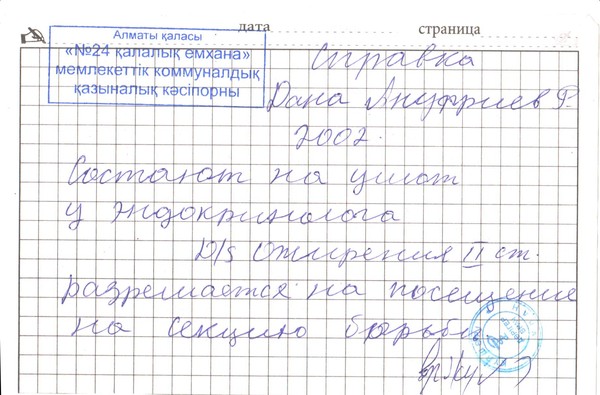 дата страница
Алматы қаласы
«№24 қалалық емхана»
мемлекеттік коммуналдық
қазыналық кәсіпорны
Справка
Дана Ануфриев Р.
2002.
Состают на учот
у эндокринолога
D/s Ожирения II ст.
разрешается на посещение
на секцию борьбы